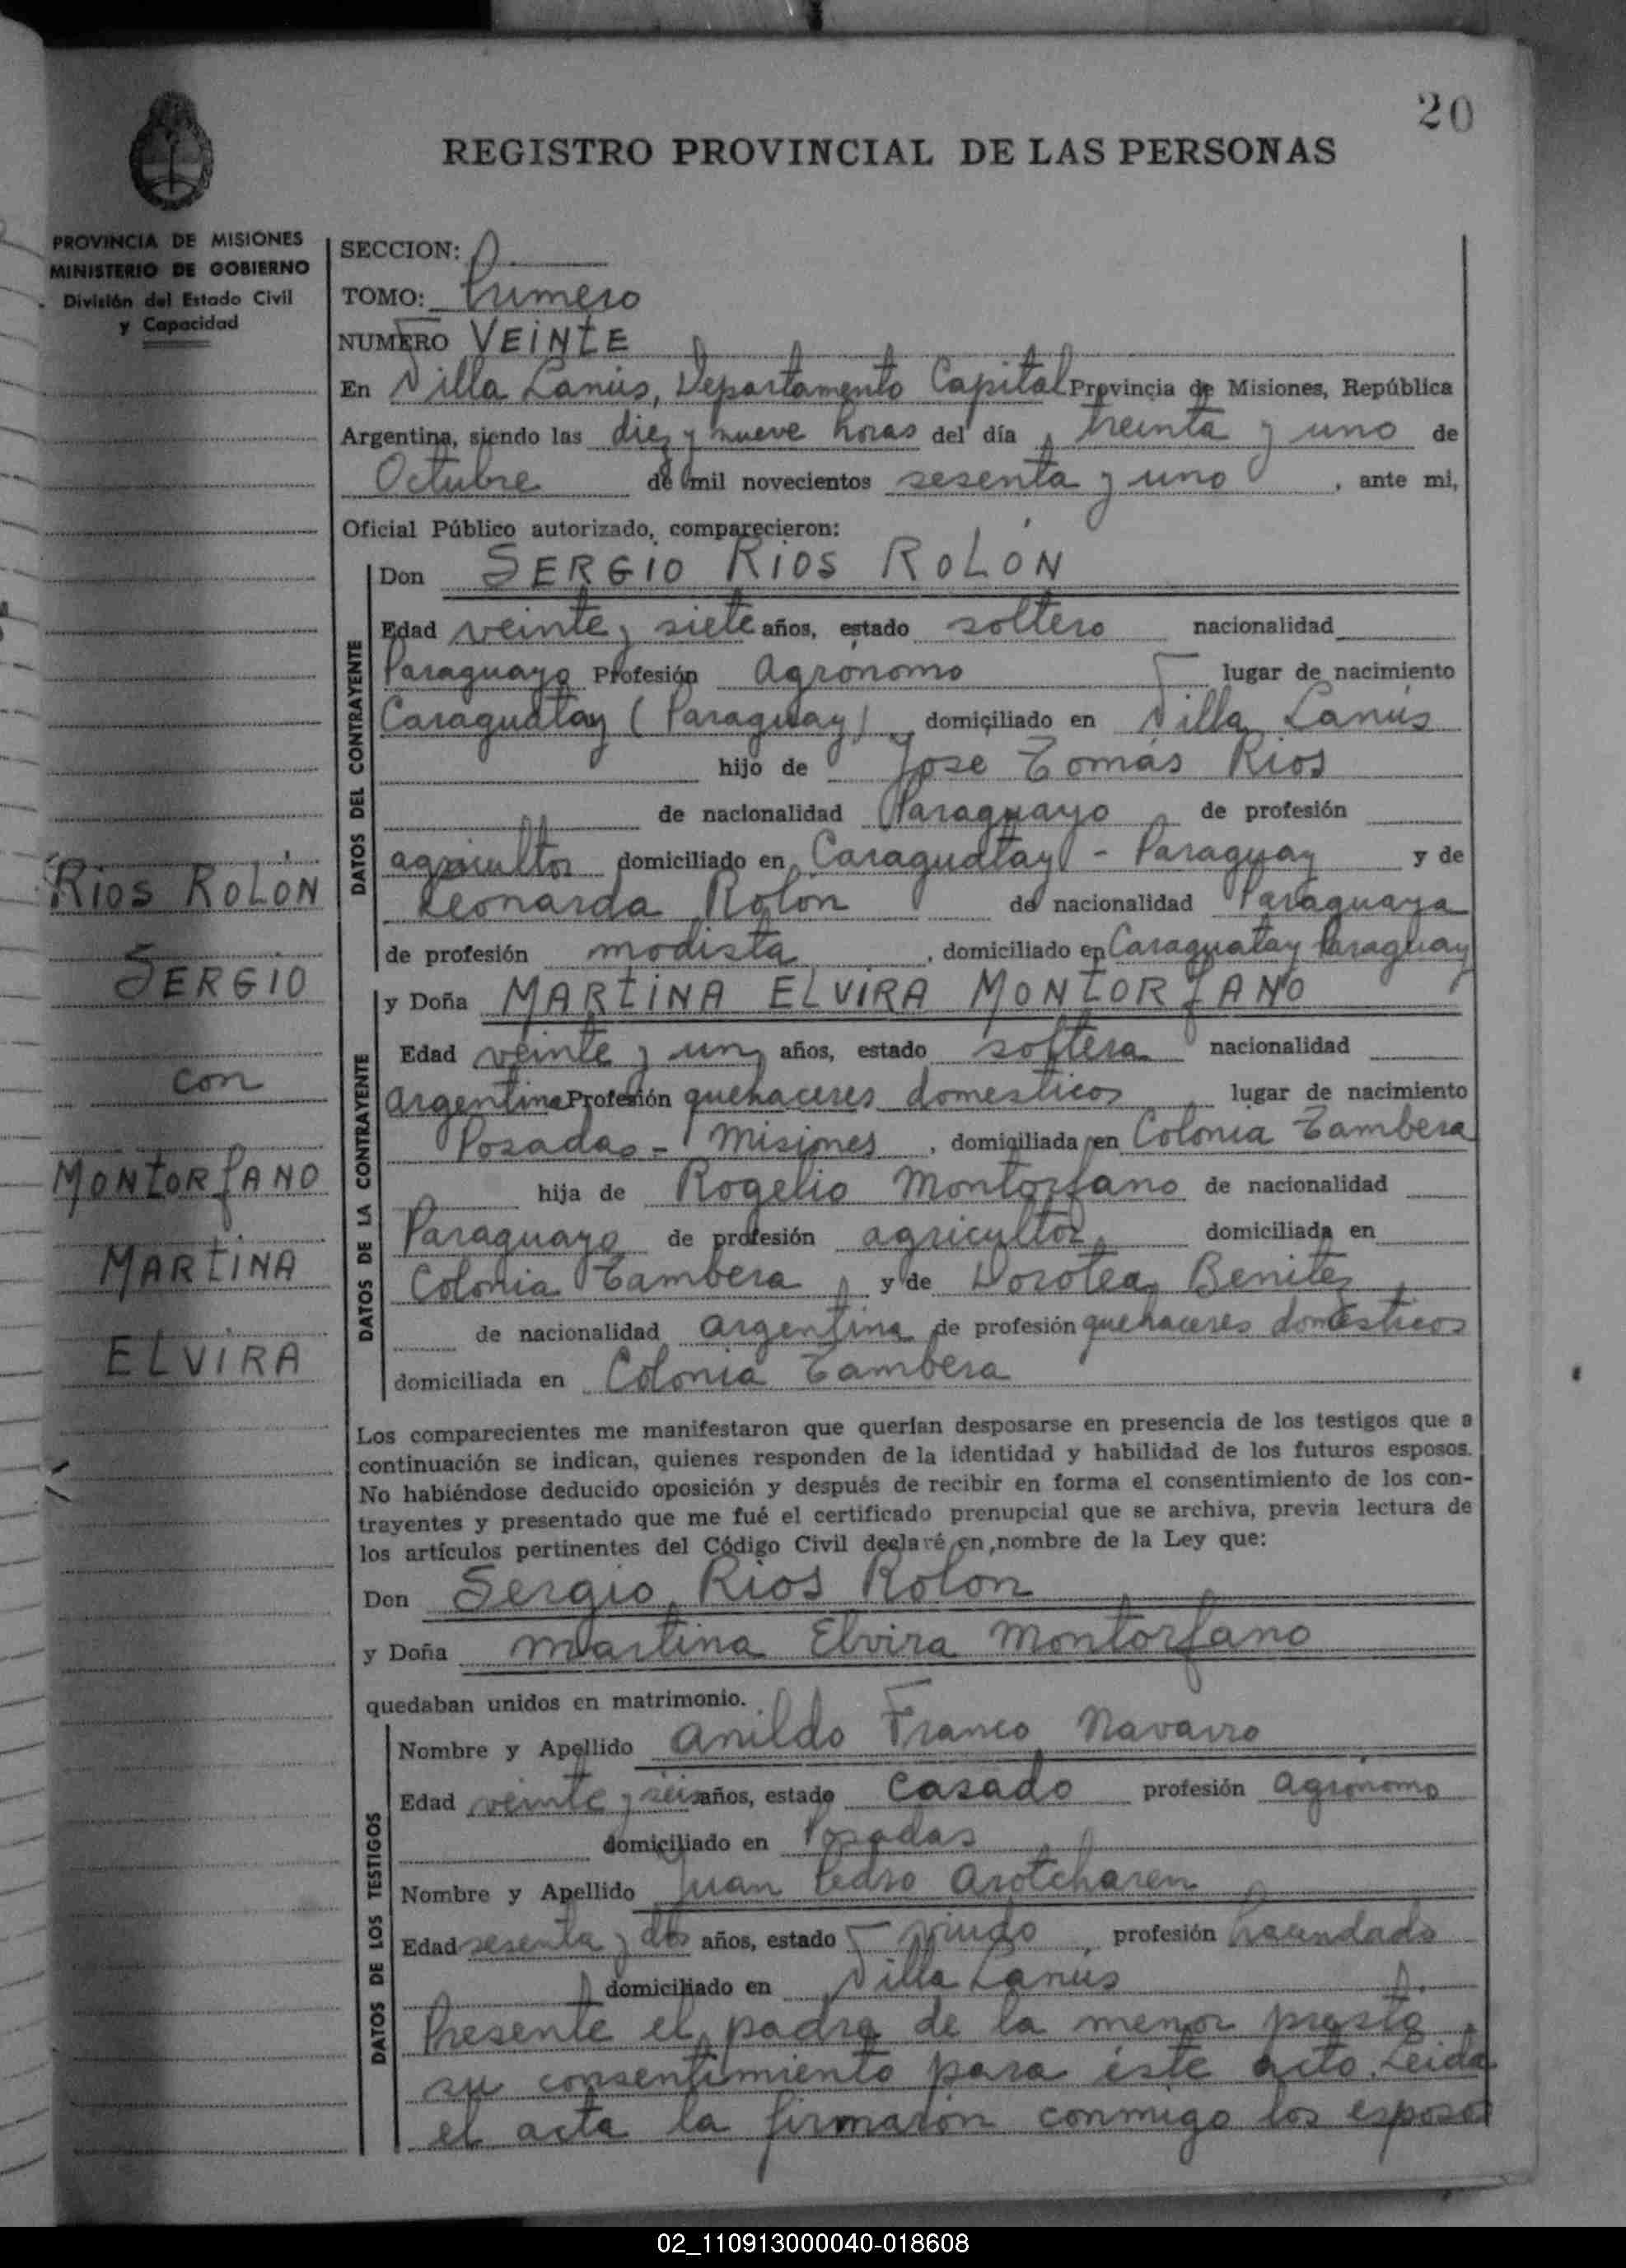 20
REGISTRO PROVINCIAL DE LAS PERSONAS
PROVINCIA DE MISIONES
MINISTERIO DE GOBIERNO
División del Estado Civil
y Capacidad
SECCION:
TOMO: Primero
NUMERO VEINTE
En Villa Lanús, Departamento Capital Provincia de Misiones, República
Argentina, siendo las diez y nueve horas del día treinta y uno de
Octubre de mil novecientos sesenta y uno, ante mi,
Oficial Público autorizado, comparecieron:
DATOS DEL CONTRAYENTE
Don SERGIO RIOS ROLÓN
Edad veinte y siete años, estado soltero nacionalidad
Paraguayo Profesión Agrónomo lugar de nacimiento
Caraguatay (Paraguay) domiciliado en Villa Lanús
hijo de Jose Tomás Rios
de nacionalidad Paraguayo de profesión
agricultor domiciliado en Caraguatay - Paraguay y de
Leonarda Rolón de nacionalidad Paraguaya
de profesión modista, domiciliado en Caraguatay Paraguay
RIOS ROLÓN
SERGIO
con
MONTORFANO
MARTINA
ELVIRA
DATOS DE LA CONTRAYENTE
y Doña MARTINA ELVIRA MONTORFANO
Edad veinte y un años, estado soltera nacionalidad
argentina Profesión quehaceres domesticos lugar de nacimiento
Posadas - Misiones, domiciliada en Colonia Tambera
hija de Rogelio Montorfano de nacionalidad
Paraguayo de profesión agricultor domiciliada en
Colonia Tambera y de Dorotea Benitez
de nacionalidad argentina de profesión quehaceres domésticos
domiciliada en Colonia Tambera
Los comparecientes me manifestaron que querían desposarse en presencia de los testigos que a
continuación se indican, quienes responden de la identidad y habilidad de los futuros esposos.
No habiéndose deducido oposición y después de recibir en forma el consentimiento de los con-
trayentes y presentado que me fué el certificado prenupcial que se archiva, previa lectura de
los artículos pertinentes del Código Civil declaré en nombre de la Ley que:
Don Sergio Rios Rolon
y Doña Martina Elvira Montorfano
quedaban unidos en matrimonio.
DATOS DE LOS TESTIGOS
Nombre y Apellido Anildo Franco Navarro
Edad veinte y seis años, estado casado profesión agronomo
domiciliado en Posadas
Nombre y Apellido Juan Pedro Arotcharen
Edad sesenta y dos años, estado viudo, profesión hacendado
domiciliado en Villa Lanus
Presente el padre de la menor presta
su consentimiento para éste acto. Leida
el acta la firmaron conmigo los esposos
02_110913000040-018608